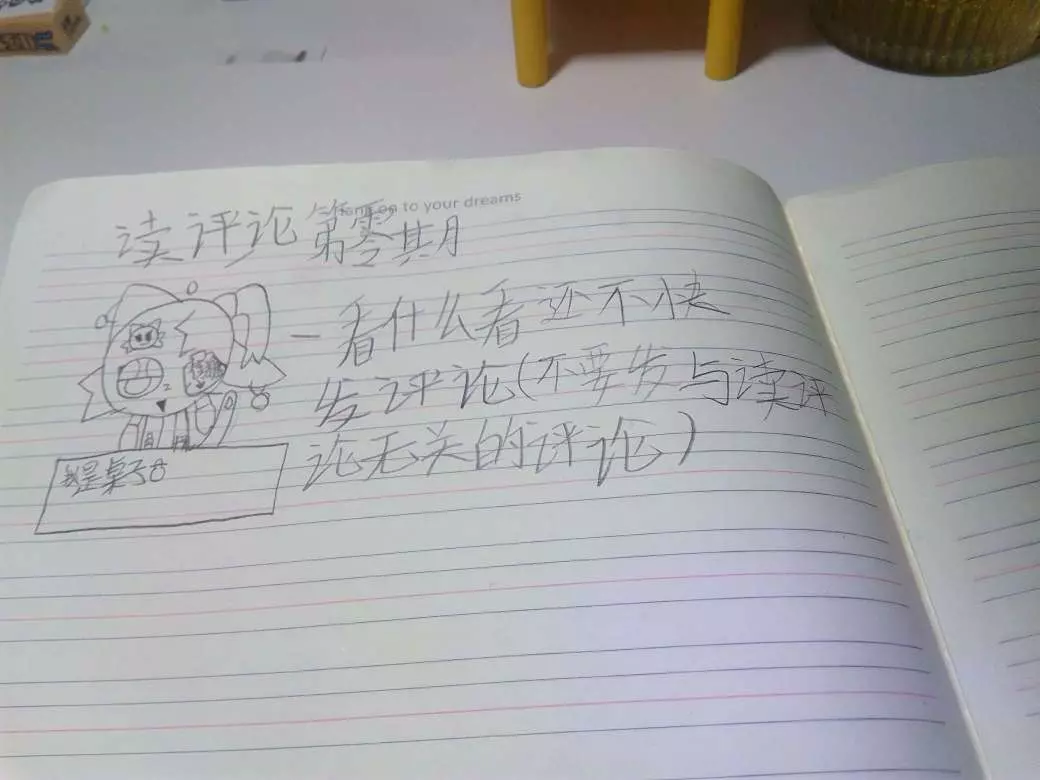 to your dreams
读评论第零期
一看什么看还不快
发评论(不要发与读评
论无关的评论)
我是桌子